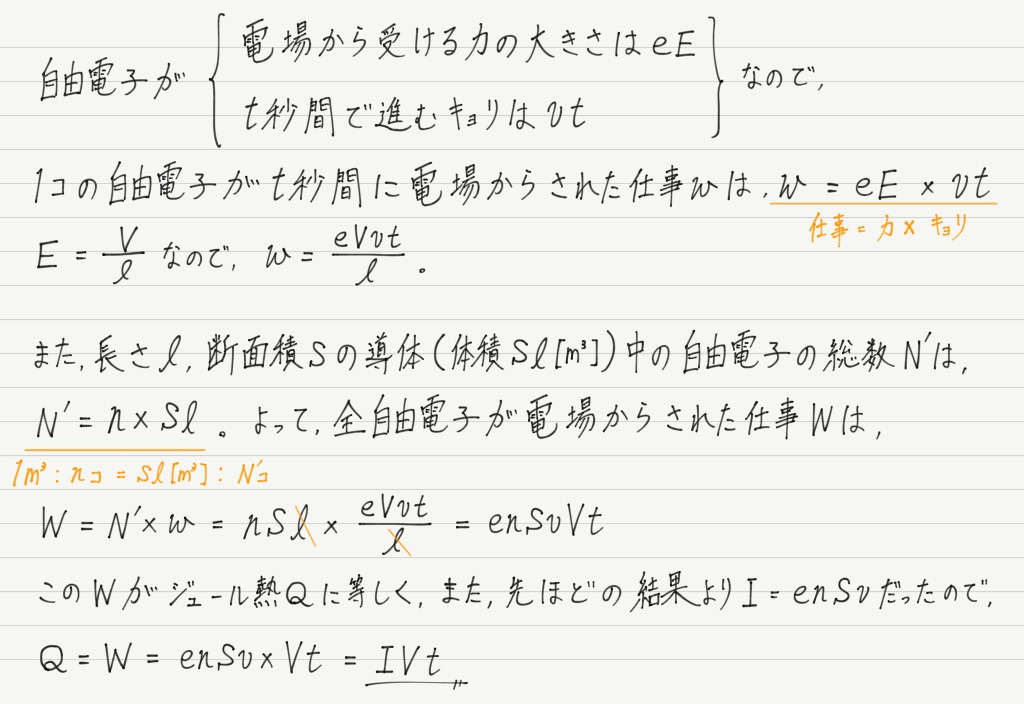 自由電子が { 電場から受ける力の大きさはeE
t秒間で進むキョリはvt } なので,
1コの自由電子がt秒間に電場からされた仕事wは, w = eE × vt
仕事 = 力 × キョリ
E = V/l なので, w = eVvt/l 。
また, 長さl, 断面積Sの導体(体積Sl[m³])中の自由電子の総数N'は,
N' = n × Sl 。よって, 全自由電子が電場からされた仕事Wは,
1m³ : nコ = Sl[m³] : N'コ
W = N' × w = nSl × eVvt/l = enSvVt
このWがジュール熱Qに等しく, また, 先ほどの結果よりI = enSvだったので,
Q = W = enSv × Vt = IVt